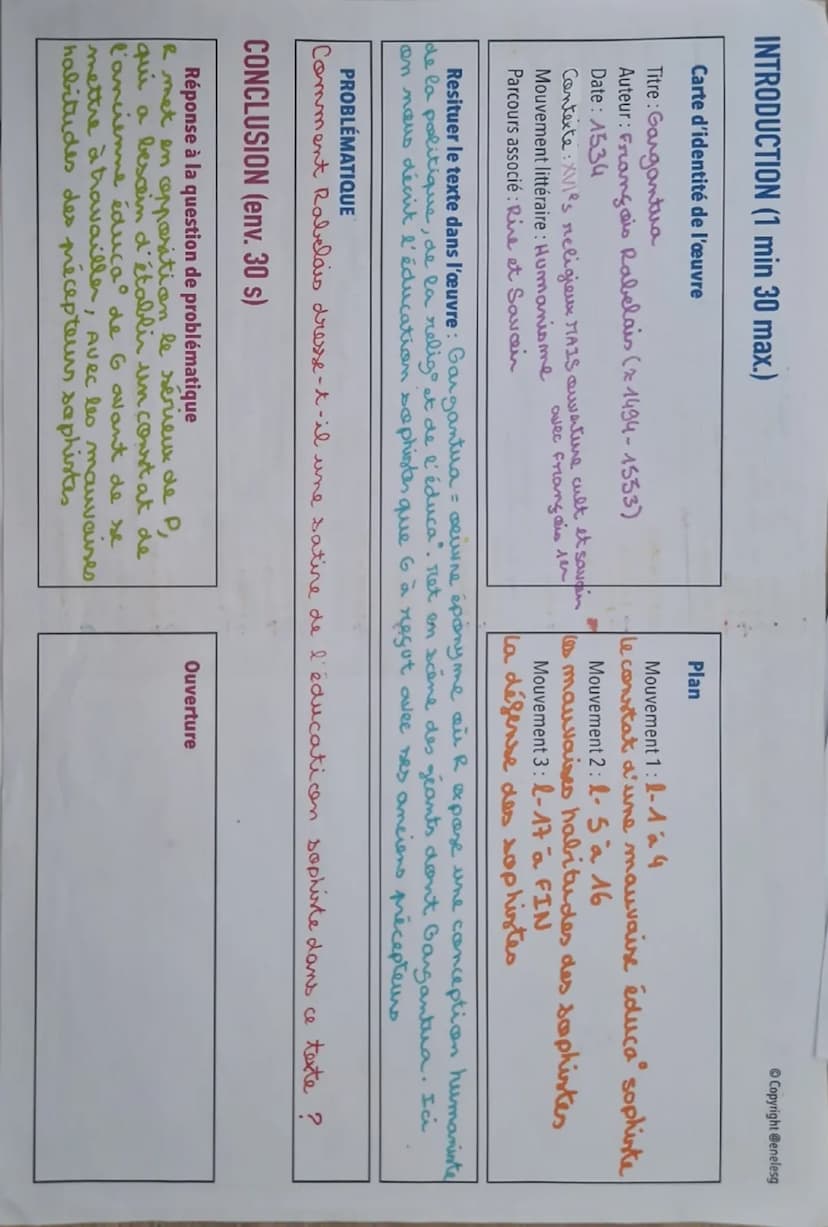 INTRODUCTION (1 min 30 max.)
© Copyright @enelesg
Carte d'identité de l'œuvre
Titre : Gargantua
Auteur : François Rabelais (≈ 1494 - 1553)
Date : 1534
Contexte : XVIe s religieux MAIS ouverture cult et savoir
avec François 1er
Mouvement littéraire : Humanisme
Parcours associé : Rire et Savoir
Plan
Mouvement 1 : l-1 à 4
le constat d'une mauvaise éduca° sophiste
Mouvement 2 : l- 5 à 16
les mauvaises habitudes des sophistes
Mouvement 3 : l- 17 à FIN
la défense des sophistes
Resituer le texte dans l'œuvre : Gargantua = œuvre éponyme où R expose une conception humaniste
de la politique, de la relig° et de l'éduca°. Met en scène des géants dont Gargantua. Ici
on nous décrit l'éducation sophistes que G à reçut avec ses anciens précepteurs
PROBLÉMATIQUE
Comment Rabelais dresse-t-il une satire de l'éducation sophiste dans ce texte ?
CONCLUSION (env. 30 s)
Réponse à la question de problématique
R met en opposition le sérieux de P,
qui a besoin d'établir un constat de
l'ancienne éduca° de G avant de se
mettre à travailler, avec les mauvaises
habitudes des précepteurs sophistes
Ouverture